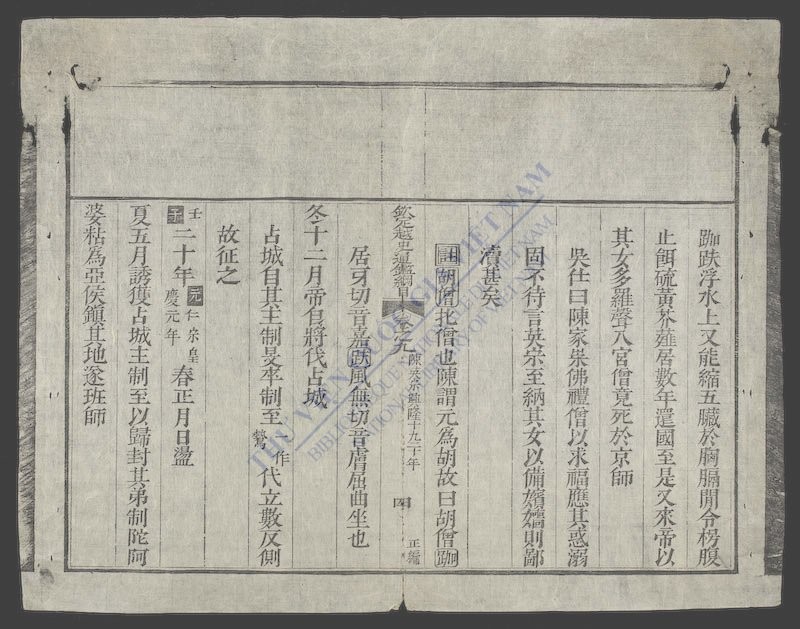 跏趺浮水上又能縮五臟於胸膈間令枵腹
止餌硫黃芥薤居數年還國至是又來帝以
其女多羅聲入宮僧竟死於京師
吳仕曰陳家崇佛禮僧以求福應其惑溺
固不待言英宗至納其女以備嬪嬙則鄙
瀆甚矣
註胡僧北僧也陳謂元爲胡故曰胡僧跏
欽定越史通鑑綱目 卷之九 陳英宗興隆十九二十年 四 正編
居牙切音嘉趺風無切音膚屈曲坐也
冬十二月帝自將伐占城
占城自其主制旻卒制至 一作鶩 代立數反側
故征之
壬子二十年 元仁宗皇慶元年 春正月日盪
夏五月誘獲占城主制至以歸封其弟制陀阿
婆粘爲亞侯鎮其地遂班師
THƯ VIỆN QUỐC GIA VIỆT NAM
BIBLIOTHÈQUE NATIONALE DU VIETNAM
NATIONAL LIBRARY OF VIETNAM